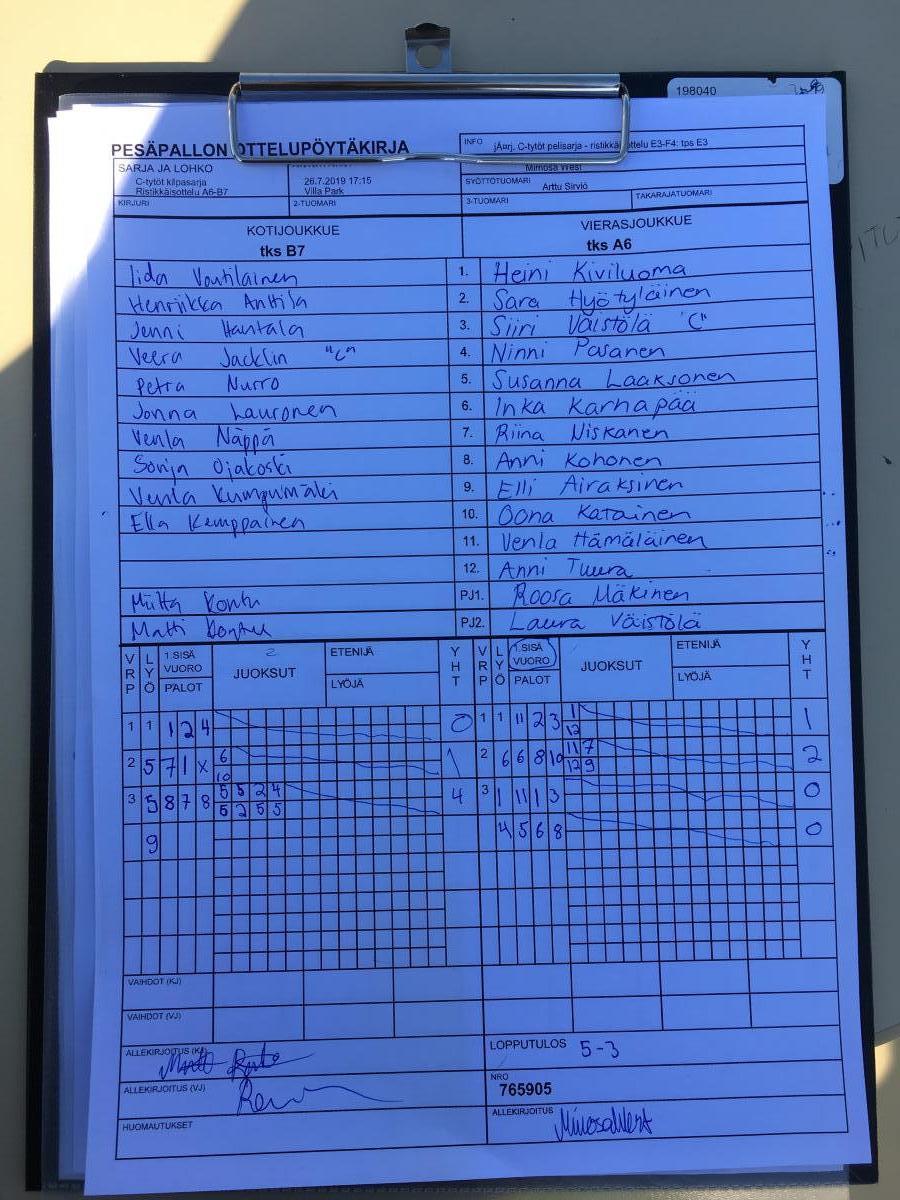 198040
PESÄPALLON OTTELUPÖYTÄKIRJA
INFO jÄ¤rj, C-tytöt pelisarja - ristikkäisottelu E3-F4: tps E3
SARJA JA LOHKO
C-tytöt kilpasarja
Ristikkäisottelu A6-B7
26.7.2019 17:15
Villa Park
Mimosa West
SYÖTTÖTUOMARI Arttu Sirviö
KIRJURI 2-TUOMARI 3-TUOMARI TAKARAJATUOMARI
KOTIJOUKKUE VIERASJOUKKUE
tks B7 tks A6
Iida Voutilainen 1. Heini Kiviluoma
Henriikka Anttila 2. Sara Hyötyläinen
Jenni Hantala 3. Siiri Väistölä "C"
Veera Jacklin "C" 4. Ninni Pasanen
Petra Nurro 5. Susanna Laaksonen
Jonna Lauronen 6. Inka Karhapää
Venla Näppä 7. Riina Niskanen
Sonja Ojakoski 8. Anni Kohonen
Venla Kumpumäki 9. Elli Airaksinen
Ella Kemppainen 10. Oona Katainen
11. Venla Hämäläinen
12. Anni Tuura
Miitta Kontu PJ1. Roosa Mäkinen
Matti PJ2. Laura Väistölä
VRP LYÖ 1.SISÄ VUORO PALOT 2 JUOKSUT ETENIJÄ LYÖJÄ YHT VRP LYÖ 1.SISÄ VUORO PALOT JUOKSUT ETENIJÄ LYÖJÄ YHT
1 1 1 2 4 0 1 1 11 2 3 1 12 1
2 5 7 1 x 6 10 1 2 6 6 8 10 11 7 12 9 2
3 5 8 7 8 5 5 2 4 6 2 5 5 4 3 1 11 1 3 0
9 4 5 6 8 0
VAIHDOT (KJ)
VAIHDOT (VJ)
ALLEKIRJOITUS (KJ) LOPPUTULOS 5-3
ALLEKIRJOITUS (VJ) NRO 765905
HUOMAUTUKSET ALLEKIRJOITUS Mimosa West